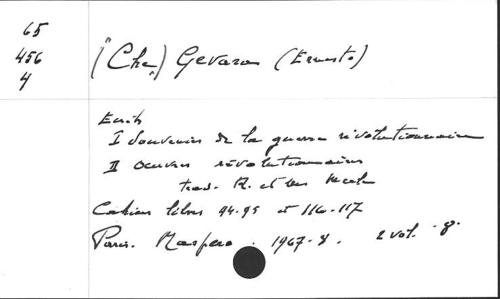 65
456
4
("Che") Gevara (Ernesto)
Ecrits
I Souvenirs de la guerre révolutionnaire
II Oeuvres révolutionnaires
trad. R. et
Cahiers libres 94-95 et 116-117
Paris. Maspero. 1967-8. 2 vol. 8°.